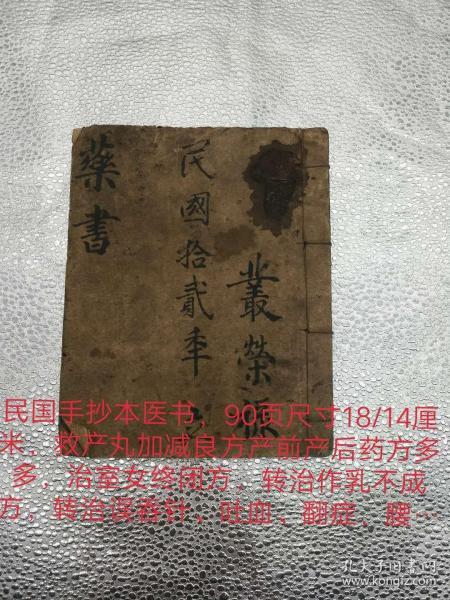 叢榮派
民國拾貳年
藥書
民国手抄本医书，90页尺寸18/14厘
米，救产丸加减良方产前产后药方多
多，治室女经闭方，转治作乳不成
方，转治误吞针，吐血、翻症、腰…
孔夫子旧书网
www.kongfz.com